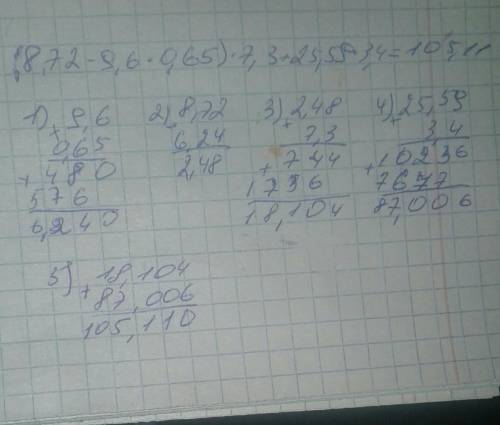 (8,72-9,6·0,65)·7,3+25,59·3,4=105,11
1) 9,6
0,65
+ 480
576
6,240
2) 8,72
6,24
2,48
3) 2,48
7,3
+ 744
1736
18,104
4) 25,59
3 4
+ 10236
7677
87,006
5) 18,104
+ 87,006
105,110